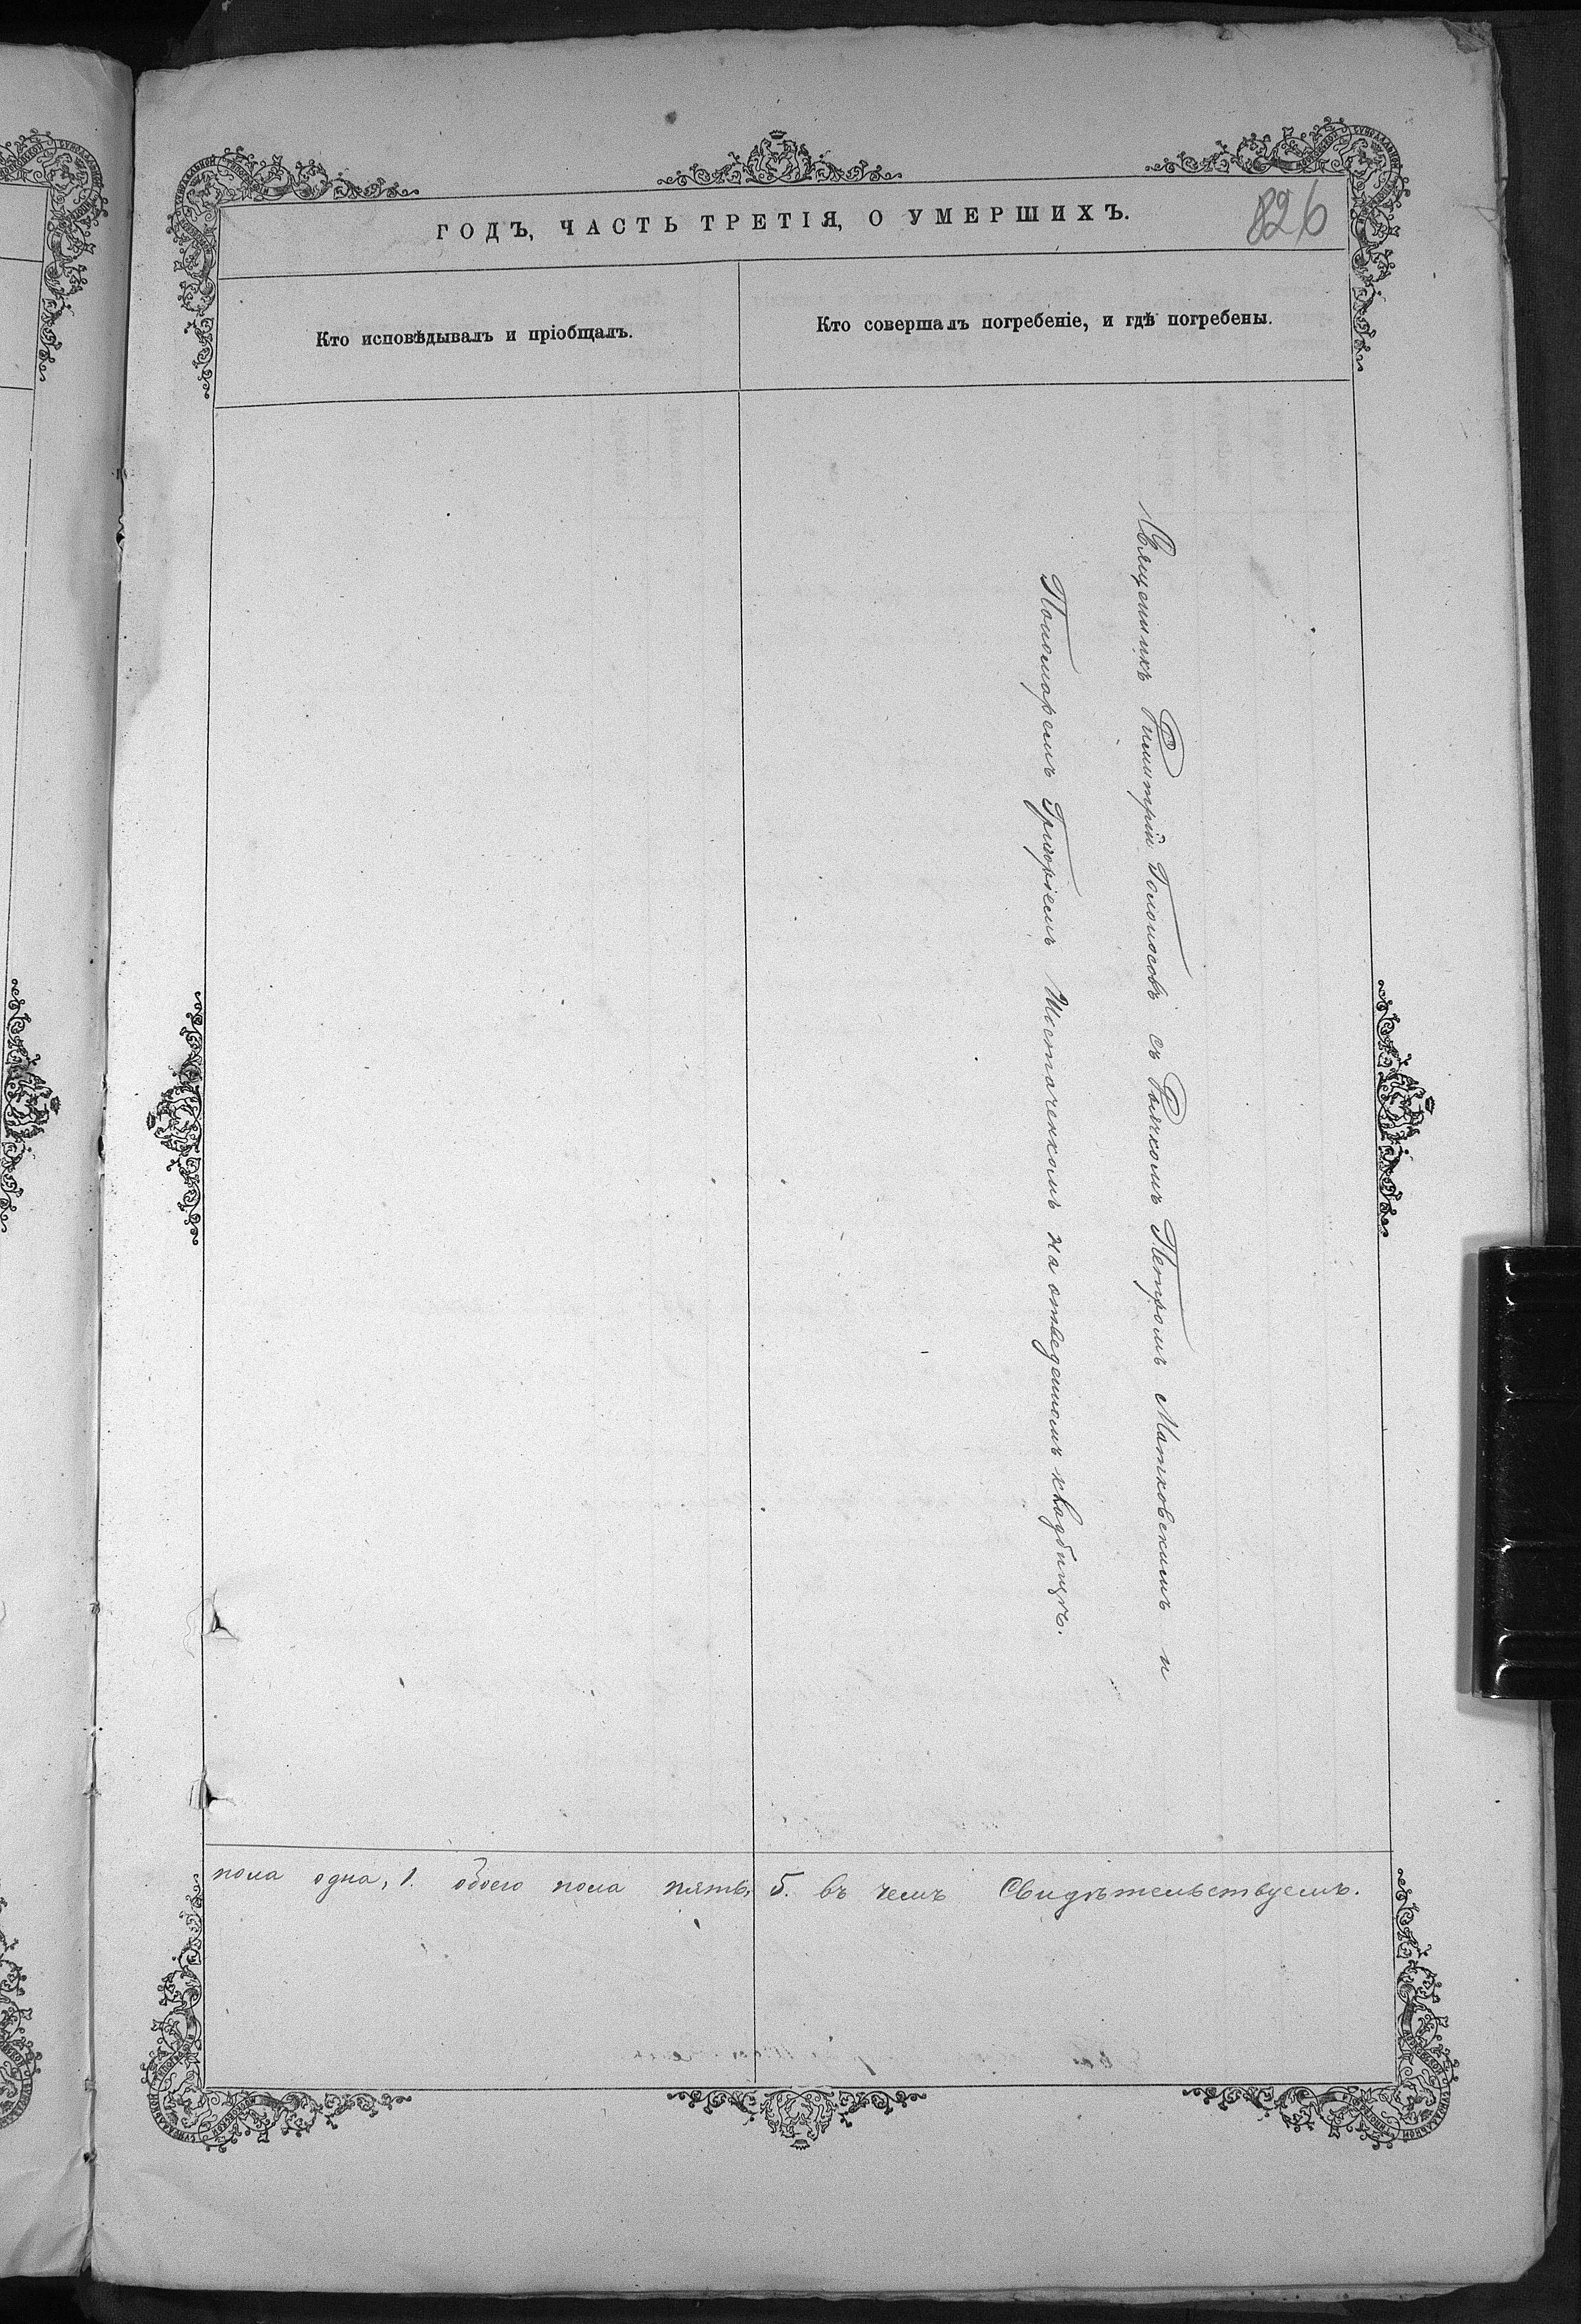 ГОДЪ, ЧАСТЬ ТРЕТІЯ, О УМЕРШИХЪ.
826
Кто исповѣдывалъ и пріобщалъ.
Кто совершалъ погребеніе, и гдѣ погребены.
Священникъ Димитрій Голоновъ съ Дьячкомъ Петромъ Матковскимъ и
Пономаремъ Григоріемъ на отведенномъ кладбищѣ.
пола одна, 1. обоего пола пять, 5. въ чемъ Свидѣтельствуемъ.